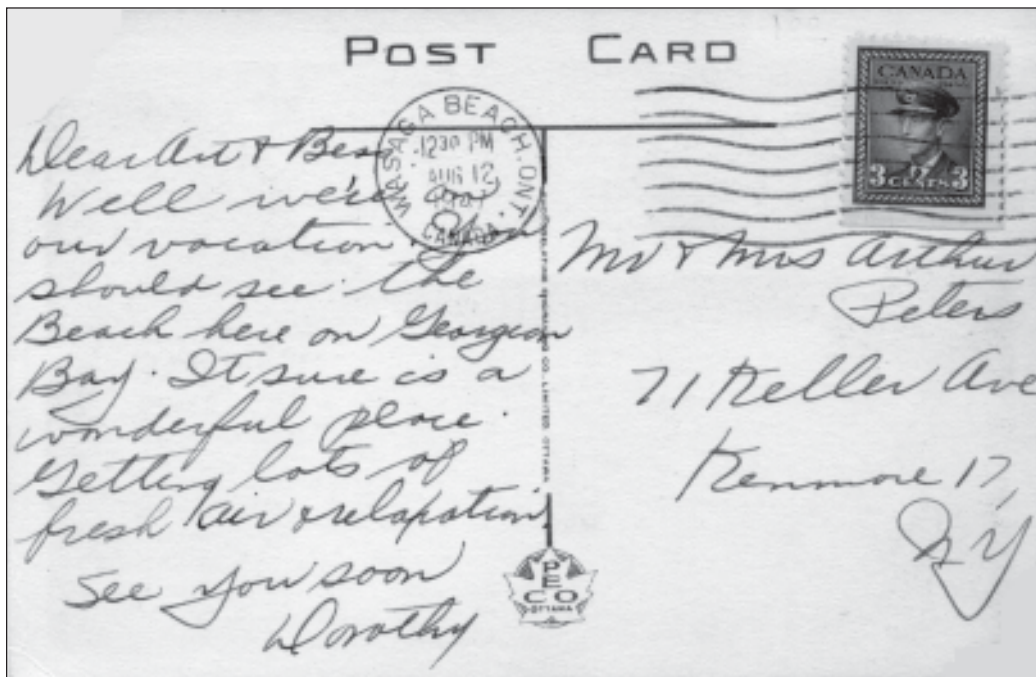 POST CARD
WASAGA BEACH. ONT.
1230 PM
AUG 12
CANADA
CANADA
3 CENTS 3
Dear Art &
Well we're on
our vacation. You
should see the
Beach here on Georgian
Bay. It sure is a
wonderful place.
Getting lots of
fresh air & relaxation
See you soon
Dorothy
Mr & Mrs Arthur
Peters
71 Keller Ave
Kenmore 17,
NY
CO LIMITED OTTAWA
PECO
OTTAWA